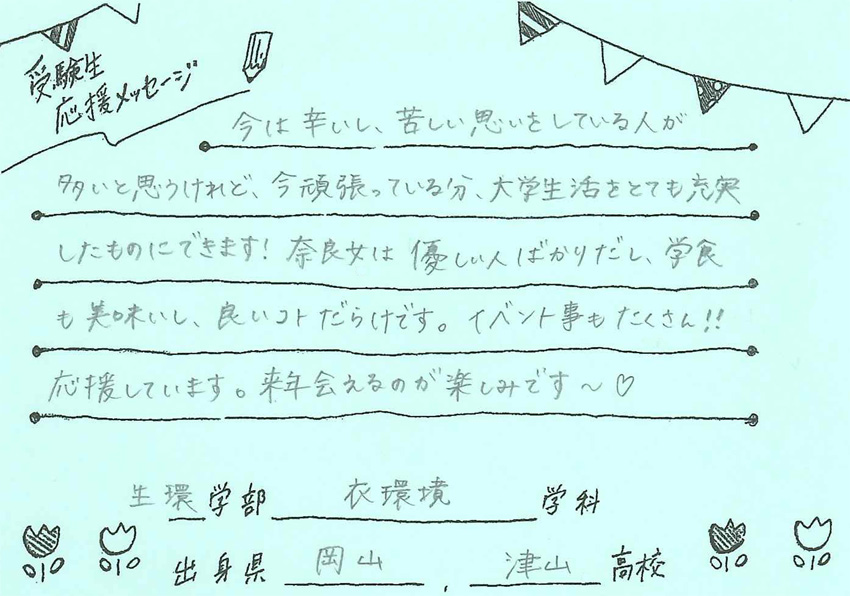 受験生
応援メッセージ
今は辛いし、苦しい思いをしている人が
多いと思うけれど、今頑張っている分、大学生活をとても充実
したものにできます！奈良女は優しい人ばかりだし、学食
も美味いし、良いコトだらけです。イベント事もたくさん!!
応援しています。来年会えるのが楽しみです～♡
生環学部 衣環境 学科
出身県 岡山 , 津山 高校